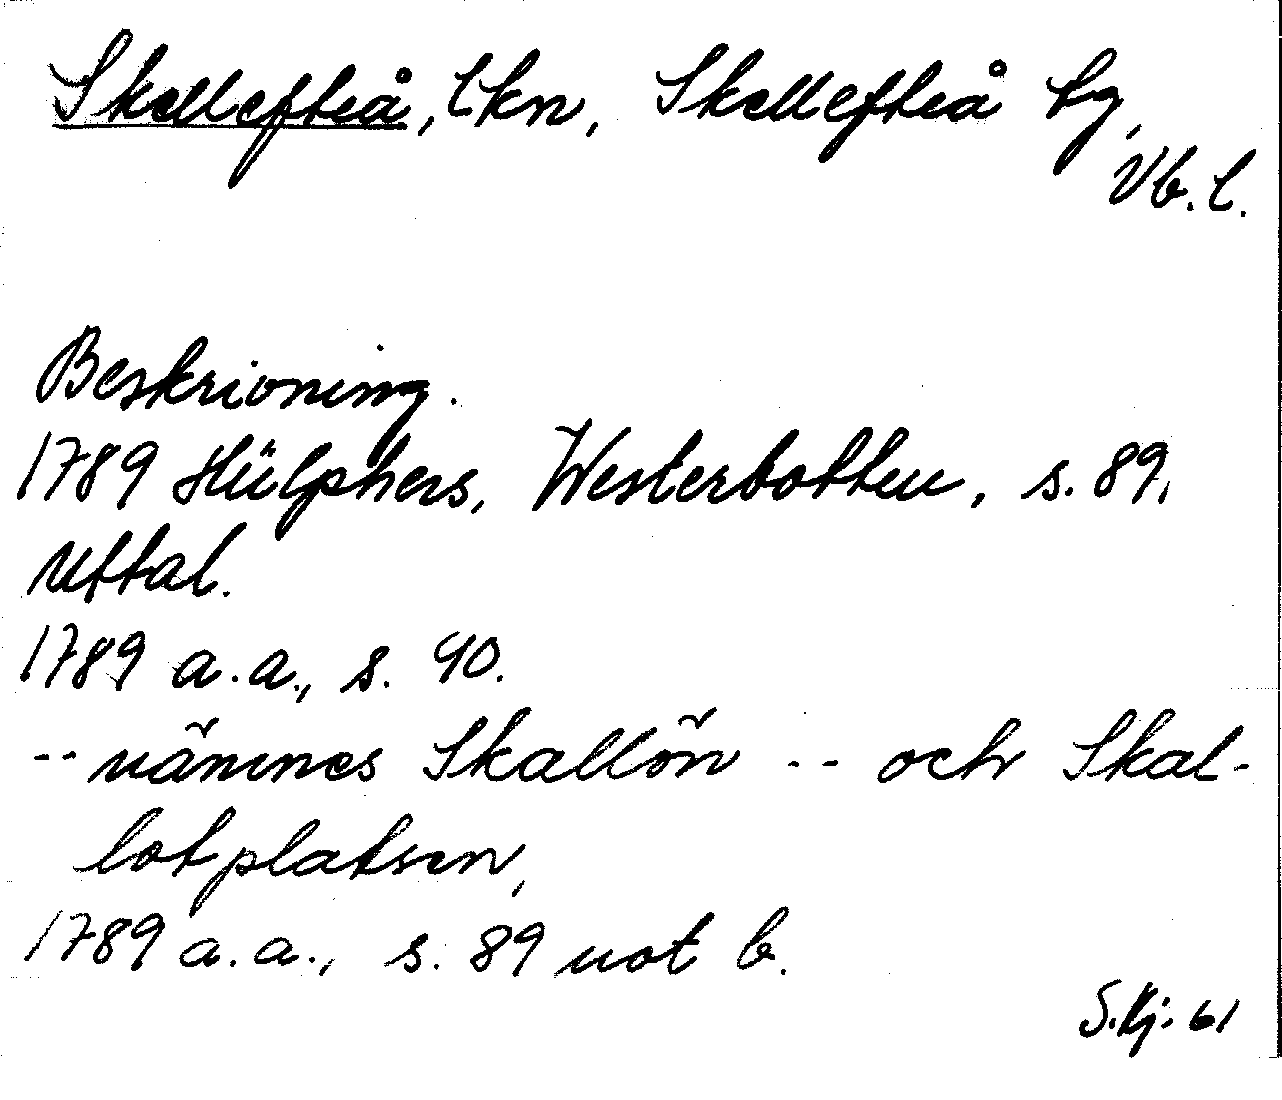 Skellefteå, lkn, Skellefteå tg,
Vb. l.
Beskrivning.
1789 Hülphers, Westerbotten, s. 89.
Uttal.
1789 a.a., s. 90.
-- nämnes Skallön -- och Skal-
lotplatsen,
1789 a.a., s. 89 not b.
S.Kj. 61